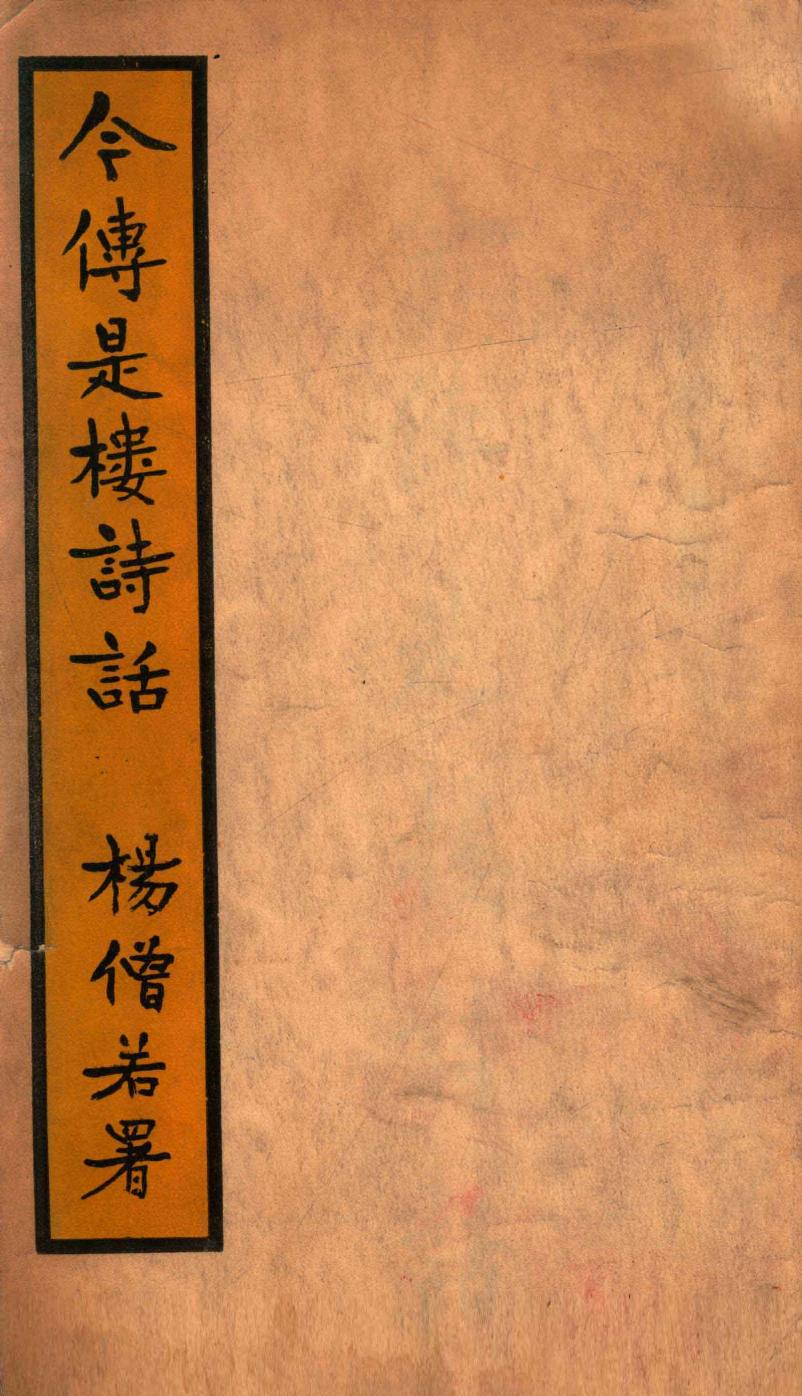 今傳是樓詩話 楊僧若署